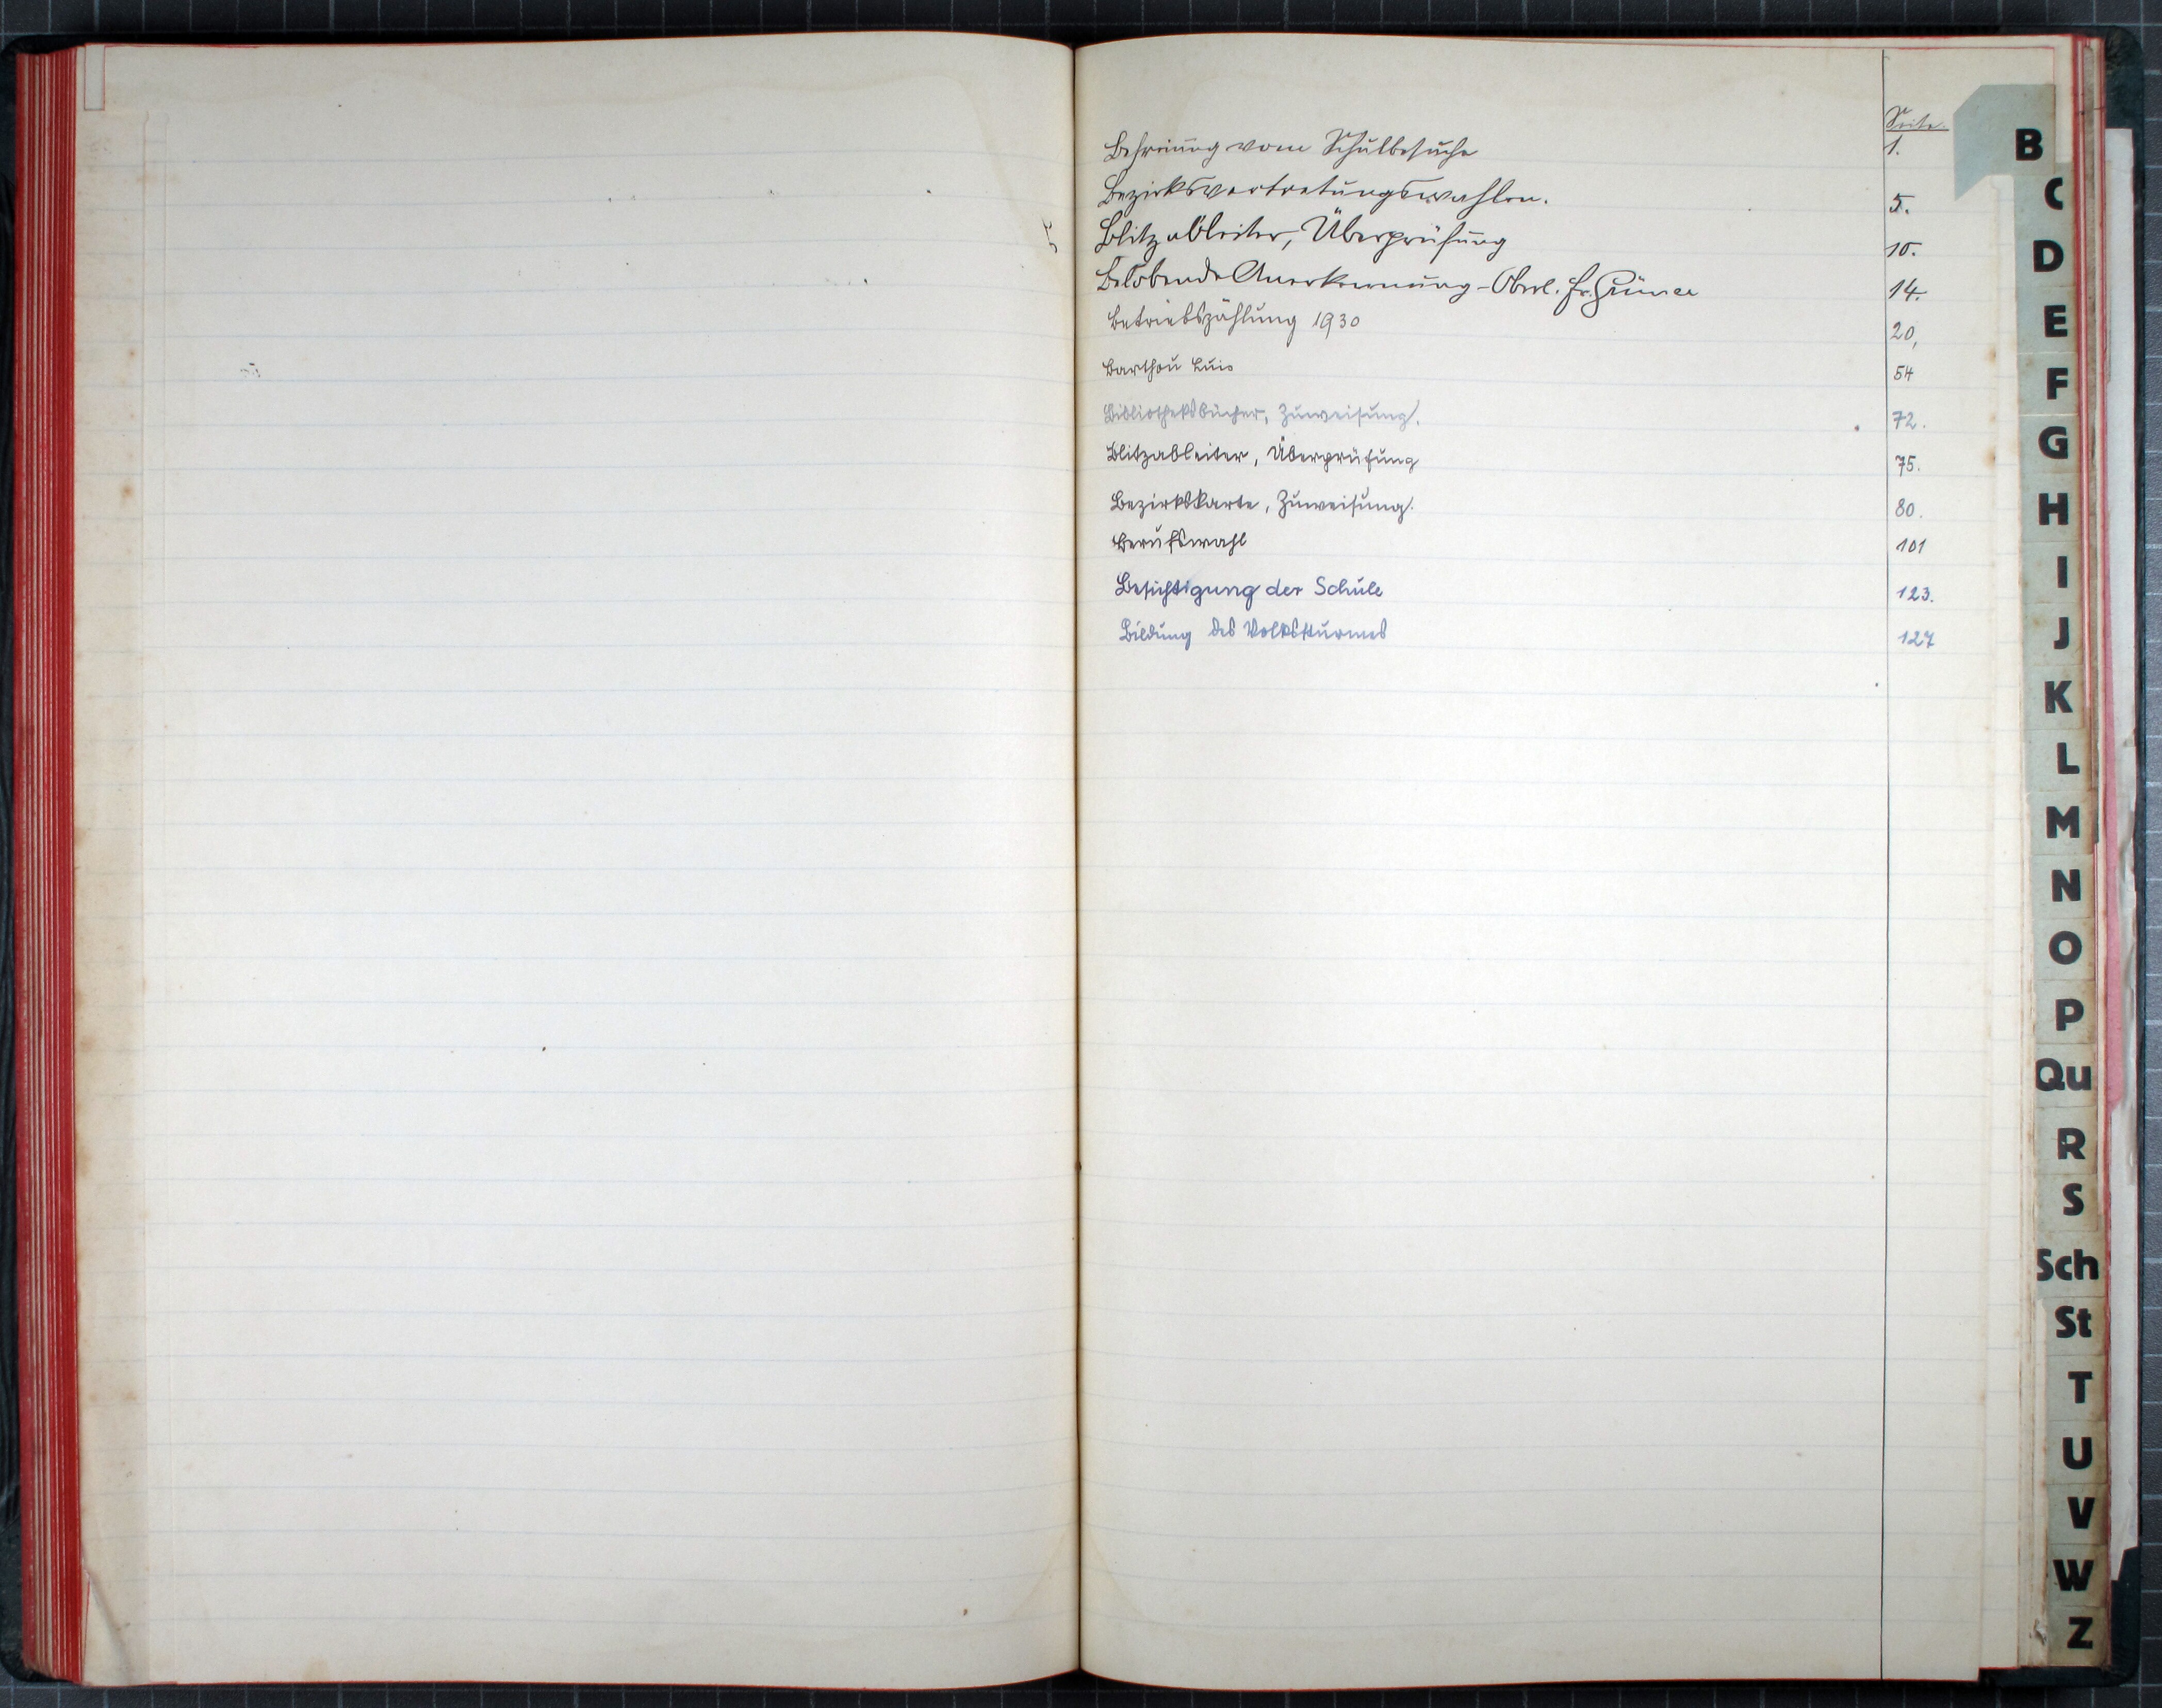 Seite.
Befreiung vom Schulbesuche 1.
Bezirksvertretungswahlen. 5.
Blitzableiter, Überprüfung 10.
Belobende Anerkennung - Oberl. Fr. Grüner 14.
Betriebszählung 1930 20,
Barthou Luis 54
Bibliotheksbücher, Zuweisung. 72.
Blitzableiter, Überprüfung 75.
Bezirkskarte, Zuweisung. 80.
Berufswahl 101
Besichtigung der Schule 123.
Bildung des Volkssturmes 127
B
C
D
E
F
G
H
I
J
K
L
M
N
O
P
Qu
R
S
Sch
St
T
U
V
W
Z